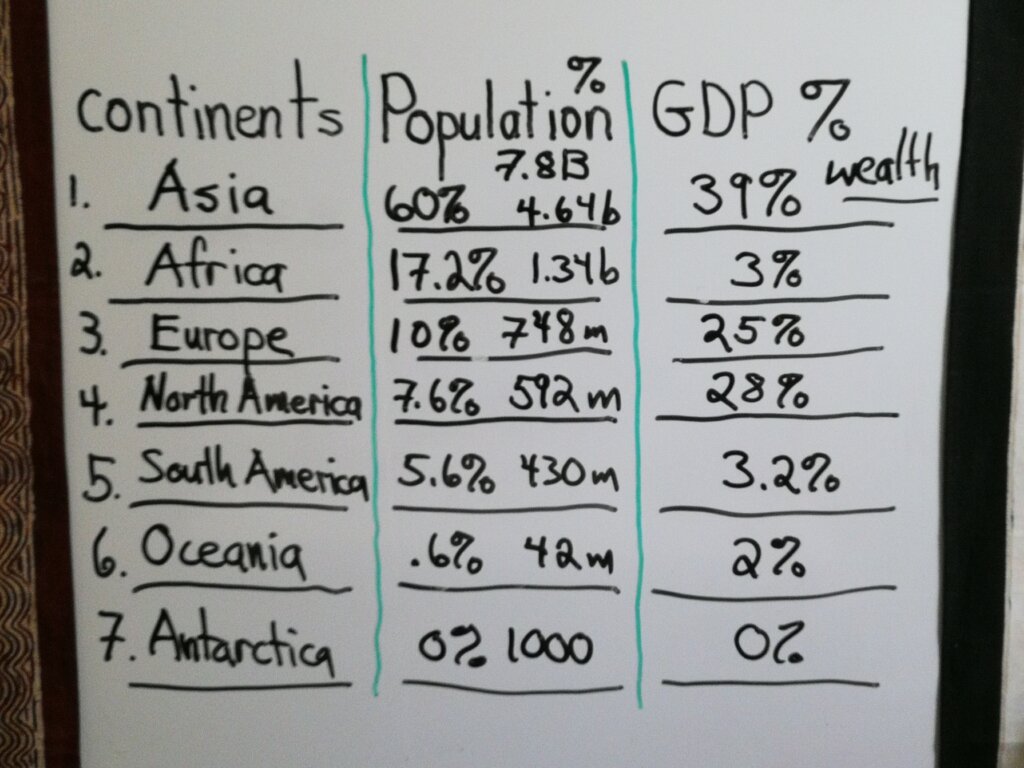 continents Population % GDP %
7.8B wealth
1. Asia 60% 4.64b 39%
2. Africa 17.2% 1.34b 3%
3. Europe 10% 748m 25%
4. North America 7.6% 592m 28%
5. South America 5.6% 430m 3.2%
6. Oceania .6% 42m 2%
7. Antarctica 0% 1000 0%